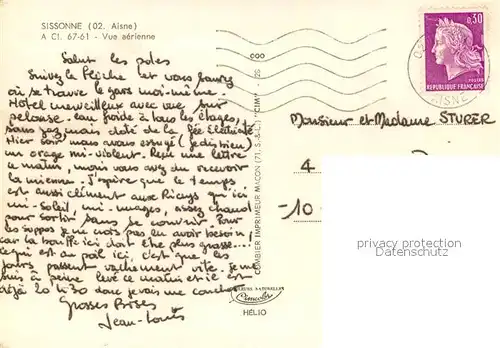 SISSONNE (02. Aisne)
A Cl. 67-61 - Vue aérienne
Salut les potes
Suivez la flèche et vous saurez
où se trouve le gars moi-même.
Hôtel merveilleux avec vue sur
pelouse. eau froide à tous les étages,
sans gaz mais doté de la fée Electricité
Hier soir nous avons essuyé (je dis rien)
un orage mi-violent. Reçu une lettre
ce matin, mais vous avez du recevoir
la mienne. J'espère que le temps
est aussi clément aux Riceys qu'ici
mi-soleil, mi-nuages, assez chaud
pour sortir sans se couvrir. Pour
les suppos je ne crois pas en avoir besoin,
car la bouffe ici doit être plus grasse...
ce qui est au poil ici, c'est que les
jours passent vachement vite. Je me
suis à peine levé ce matin et il est
déjà 20 h 30 donc je vais me coucher
Grosses Bises
Jean-Louis
COMBIER IMPRIMEUR MACON (71. S.-&-L.) "CIM"
COULEURS NATURELLES
Cimcolor
HÉLIO
0,30
POSTES
REPUBLIQUE FRANÇAISE
AISNE
Monsieur et Madame STURER
4
-10
privacy protection
Datenschutz